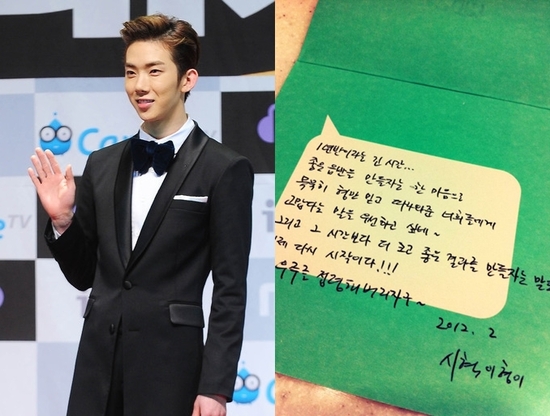 TV
1년반이라는 긴 시간...
좋은 음반을 만들자는 한 마음으로
묵묵히 형만 믿고 따라와준 너희들에게
고맙다는 말을 우선하고 싶네~
그리고 그 시간보다 더 크고 좋은 결과를 만들자는 말도
이제 다시 시작이다!!!
우주를 점령해버리자구~
2012. 2
시혁이형이